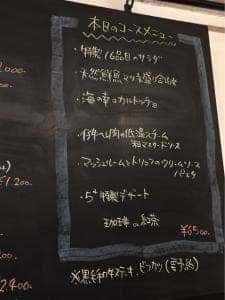 本日のコースメニュー
・特製16品目のサラダ
・天然鮮魚マリネ盛り合わせ
・海の幸のカルトッチョ
・仔牛肉の低温スチーム
粒マスタードソース
・マッシュルームとトリュフのクリームソース
パスタ
・5+特製デザート
珈琲 or 紅茶
¥6500-
※黒毛和牛ステーキ、ビフカツ (要予約)
,000-
¥1.200-
2400-